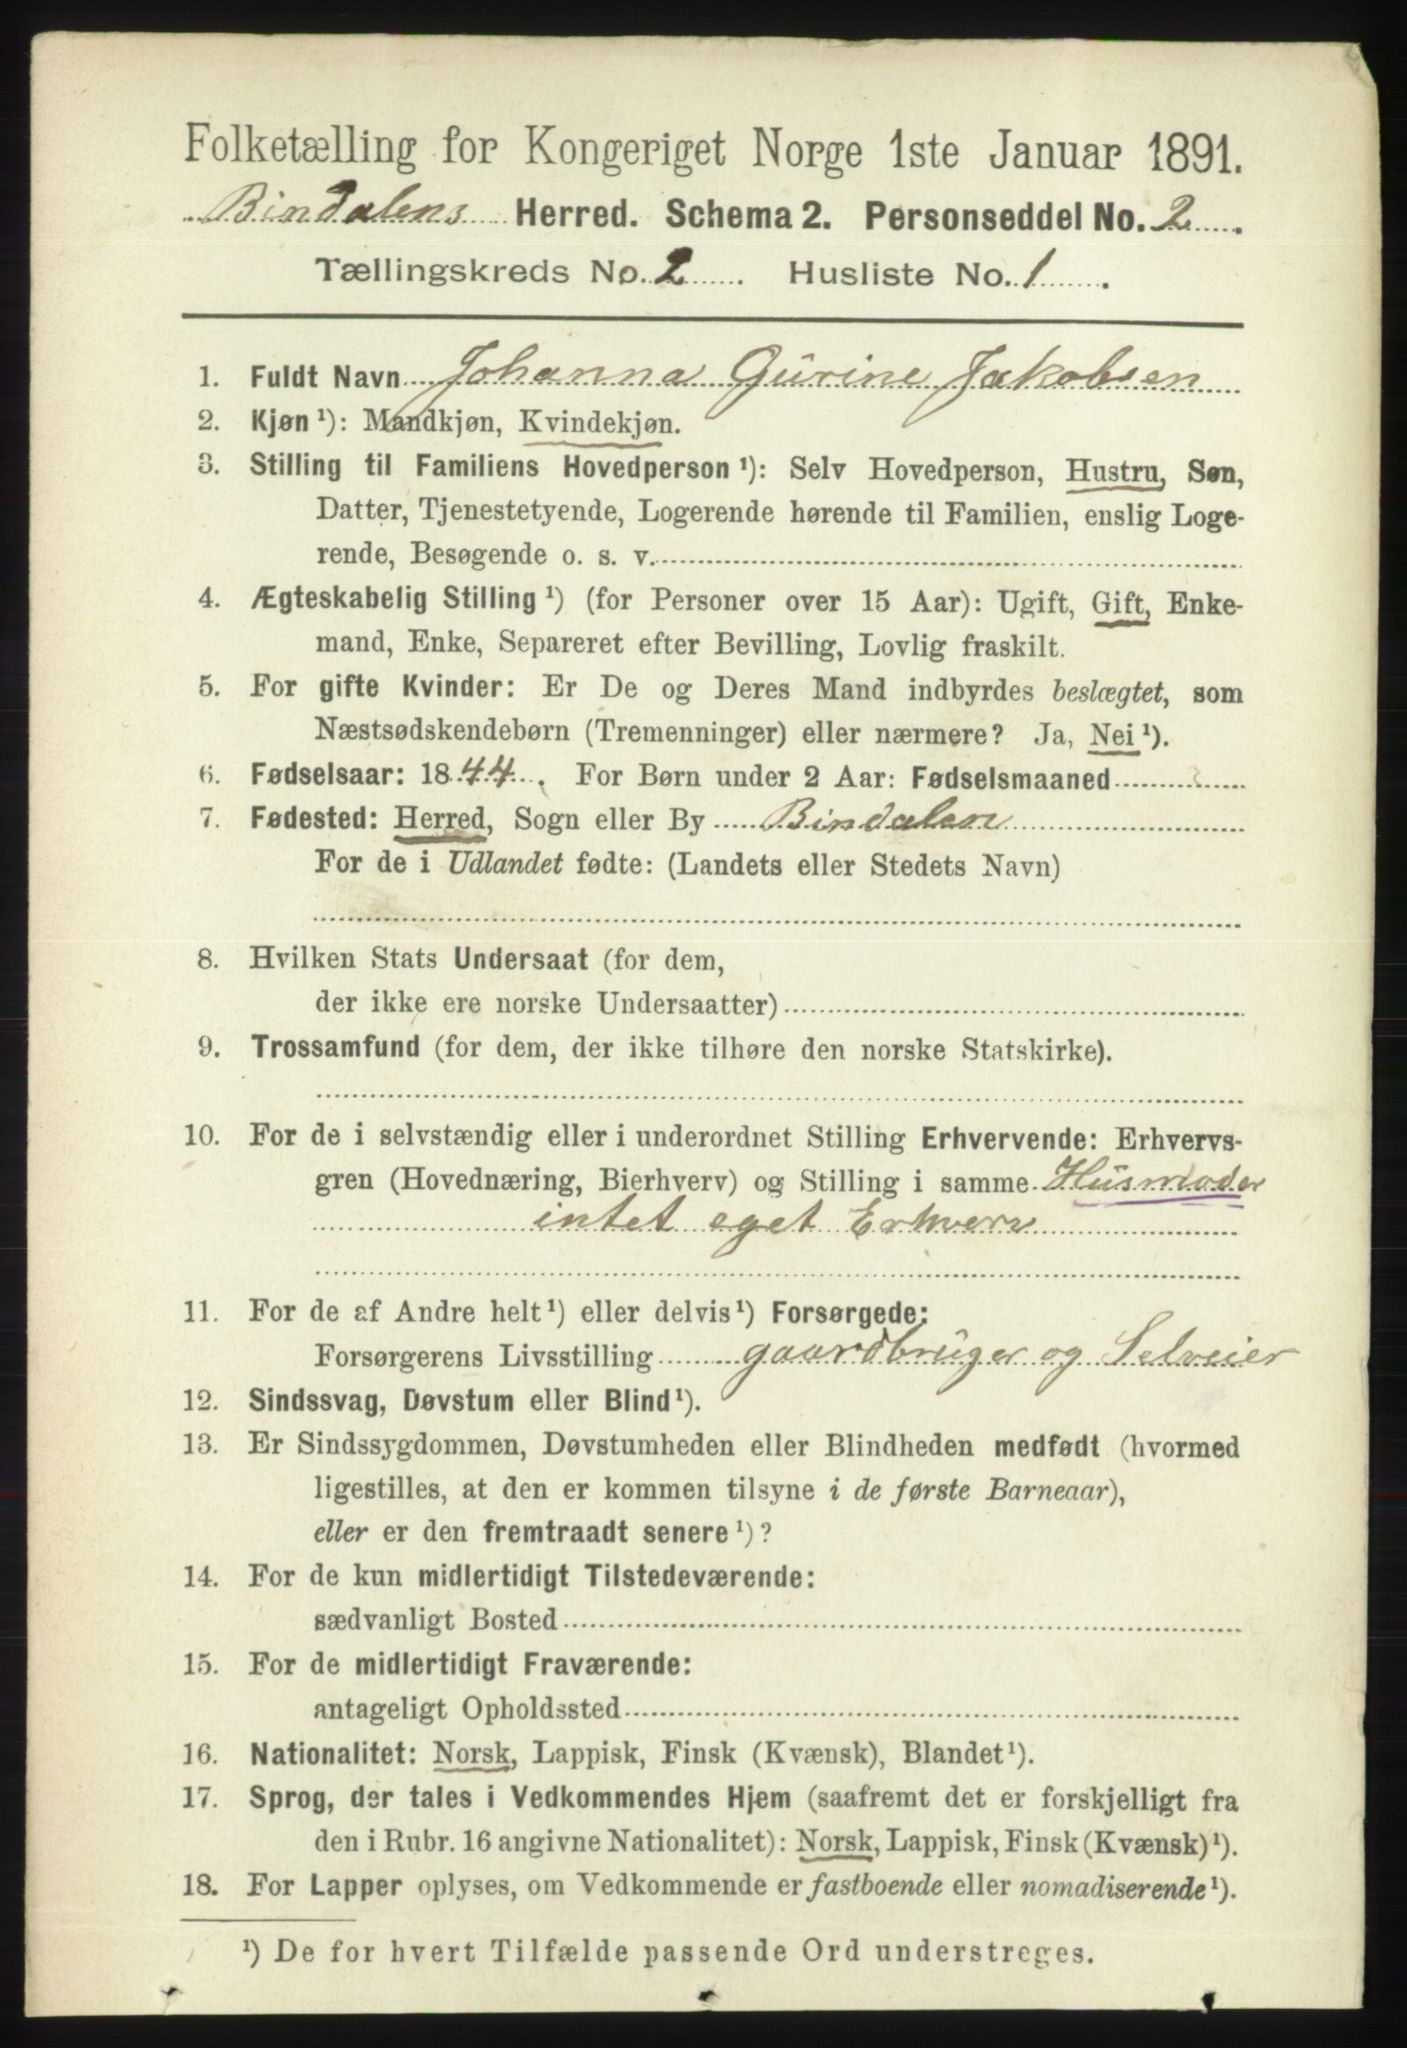 Folketælling for Kongeriget Norge 1ste Januar 1891.
Bindalens Herred. Schema 2. Personseddel No. 2.
Tællingskreds No. 2. Husliste No. 1.
1. Fuldt Navn Johanna Gurine Jakobsen
2. Kjøn ¹): Mandkjøn, Kvindekjøn.
3. Stilling til Familiens Hovedperson ¹): Selv Hovedperson, Hustru, Søn,
Datter, Tjenestetyende, Logerende hørende til Familien, enslig Loge-
rende, Besøgende o. s. v.
4. Ægteskabelig Stilling ¹) (for Personer over 15 Aar): Ugift, Gift, Enke-
mand, Enke, Separeret efter Bevilling, Lovlig fraskilt.
5. For gifte Kvinder: Er De og Deres Mand indbyrdes beslægtet, som
Næstsødskendebørn (Tremenninger) eller nærmere? Ja, Nei ¹).
6. Fødselsaar: 1844. For Børn under 2 Aar: Fødselsmaaned
7. Fødested: Herred, Sogn eller By Bindalen
For de i Udlandet fødte: (Landets eller Stedets Navn)
8. Hvilken Stats Undersaat (for dem,
der ikke ere norske Undersaatter)
9. Trossamfund (for dem, der ikke tilhøre den norske Statskirke).
10. For de i selvstændig eller i underordnet Stilling Erhvervende: Erhvervs-
gren (Hovednæring, Bierhverv) og Stilling i samme Husmoder
intet eget Erhverv
11. For de af Andre helt ¹) eller delvis ¹) Forsørgede:
Forsørgerens Livsstilling gaardbruger og Selveier
12. Sindssvag, Døvstum eller Blind ¹).
13. Er Sindssygdommen, Døvstumheden eller Blindheden medfødt (hvormed
ligestilles, at den er kommen tilsyne i de første Barneaar),
eller er den fremtraadt senere ¹)?
14. For de kun midlertidigt Tilstedeværende:
sædvanligt Bosted
15. For de midlertidigt Fraværende:
antageligt Opholdssted
16. Nationalitet: Norsk, Lappisk, Finsk (Kvænsk), Blandet ¹).
17. Sprog, der tales i Vedkommendes Hjem (saafremt det er forskjelligt fra
den i Rubr. 16 angivne Nationalitet): Norsk, Lappisk, Finsk (Kvænsk) ¹).
18. For Lapper oplyses, om Vedkommende er fastboende eller nomadiserende ¹).
¹) De for hvert Tilfælde passende Ord understreges.